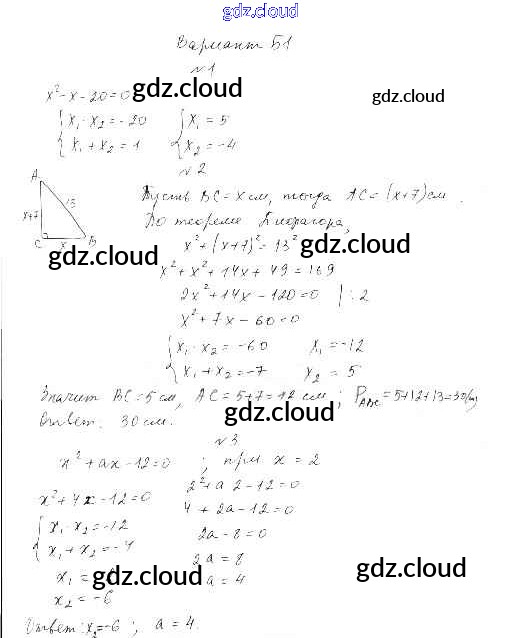 gdz.cloud
Вариант Б1
№1
x² - x - 20 = 0 gdz.cloud gdz.cloud
{ x₁ · x₂ = -20 { x₁ = 5
{ x₁ + x₂ = 1 { x₂ = -4
№2
A
x+7 13
C x B
Пусть BC = x см, тогда AC = (x+7) см.
По теореме Пифагора,
x² + (x+7)² = 13²
gdz.cloud gdz.cloud
x² + x² + 14x + 49 = 169
2x² + 14x - 120 = 0 | : 2
x² + 7x - 60 = 0
{ x₁ · x₂ = -60 x₁ = -12
{ x₁ + x₂ = -7 x₂ = 5
Значит BC = 5 см, AC = 5+7 = 12 см; P_ABC = 5+12+13=30
Ответ: 30 см. gdz.cloud
№3
x² + ax - 12 = 0 ; при x = 2
2² + a 2 - 12 = 0
x² + 4x - 12 = 0
4 + 2a - 12 = 0
{ x₁ · x₂ = -12
2a - 8 = 0
{ x₁ + x₂ = -4
2a = 8
x₁ = gdz.cloud a = 4 gdz.cloud
x₂ = -6
Ответ: x₂ = -6 ; a = 4.